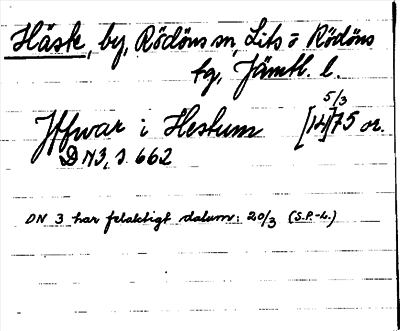 Häste, by, Rödöns sn, Lits o Rödöns
tg, Jämtl. l.
5/3
Yffwar i Hestum [14]75 or.
DN3, s. 662
DN 3 har felaktigt datum: 20/3 (S.P-L.)